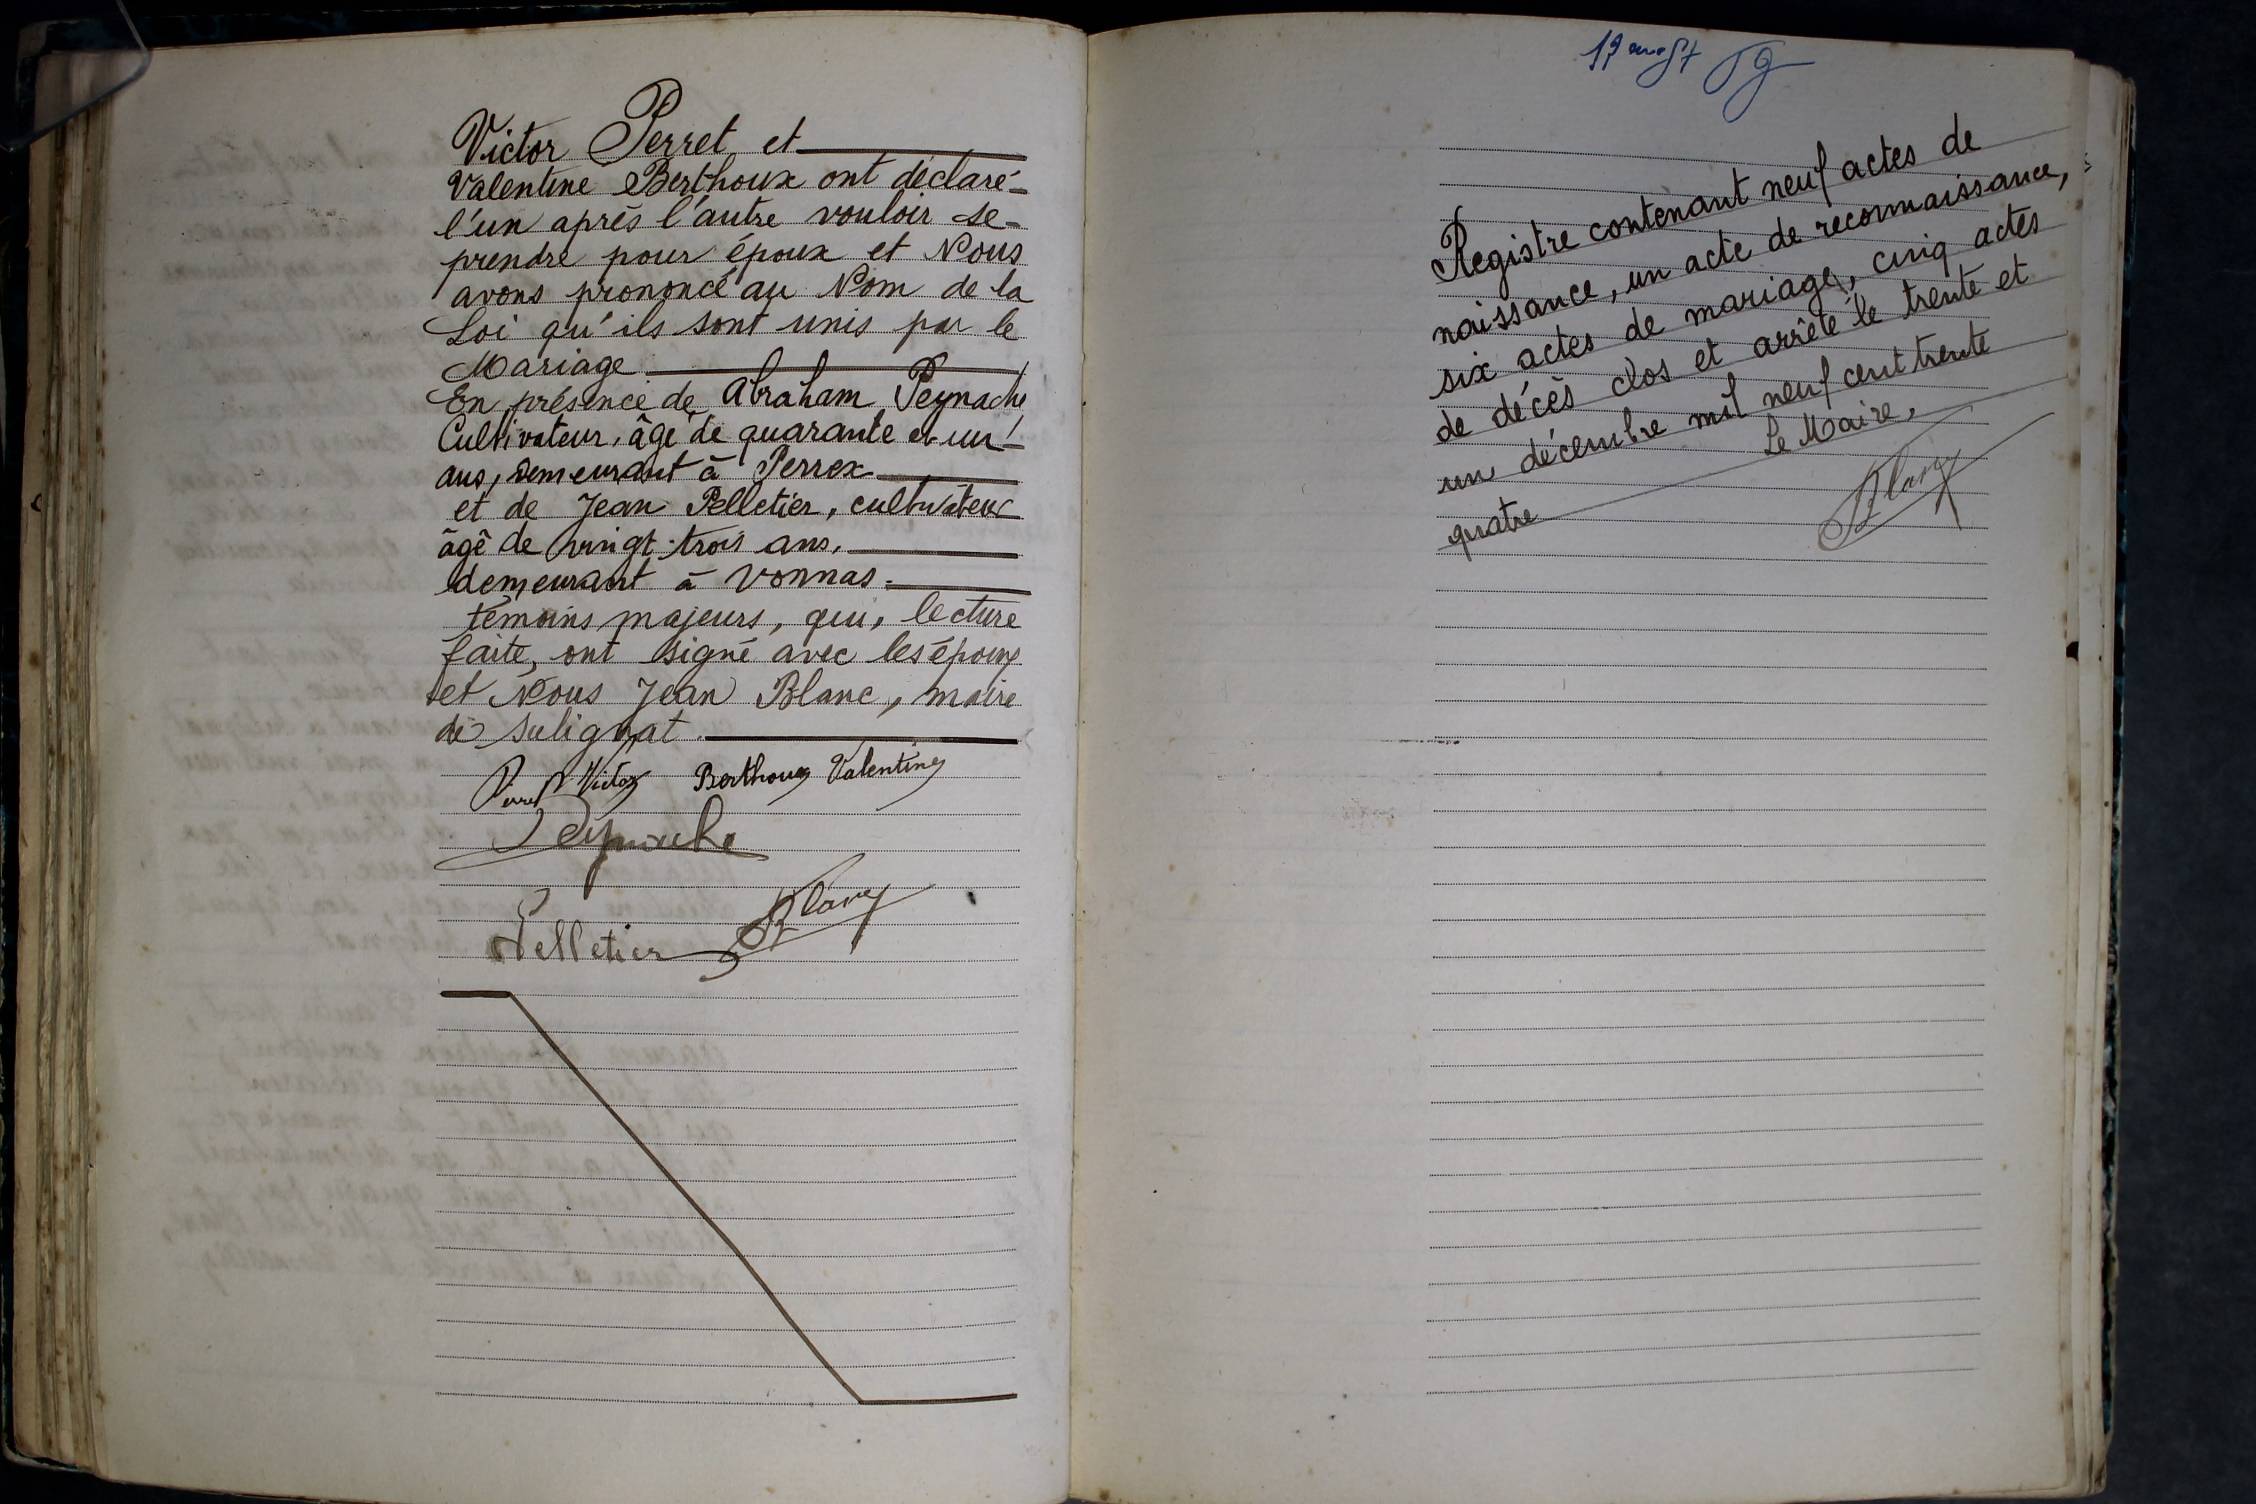 Victor Perret et
Valentine Berthoux ont déclaré
l'un après l'autre vouloir se
prendre pour époux et Nous
avons prononcé au Nom de la
Loi qu'ils sont unis par le
Mariage
En présence de Abraham Peynache
Cultivateur, âgé de quarante et un
ans, demeurant à Perrex
et de Jean Pelletier, cultivateur
âgé de vingt-trois ans,
demeurant à Vonnas.
témoins majeurs, qui, lecture
faite, ont signé avec les époux
et Nous Jean Blanc, maire
de Sulignat.
Perret Victor Berthoux Valentine
Peynache
Pelletier Blanc
Registre contenant neuf actes de
naissance, un acte de reconnaissance,
six actes de mariage, cinq actes
de décès clos et arrêté le trente et
un décembre mil neuf cent trente
quatre Le Maire,
Blanc